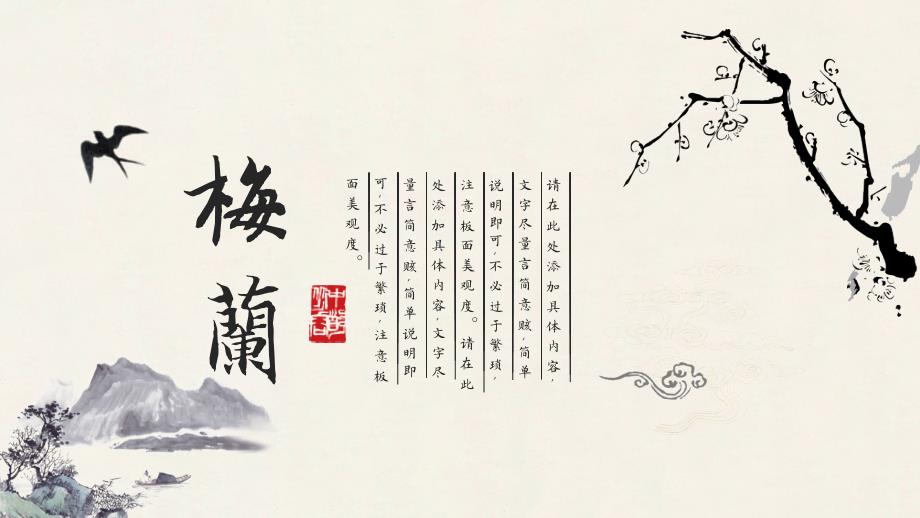 梅蘭
请在此处添加具体内容，
文字尽量言简意赅，简单
说明即可，不必过于繁琐，
注意板面美观度。 请在此
处添加具体内容，文字尽
量言简意赅，简单说明即
可，不必过于繁琐，注意板
面美观度。